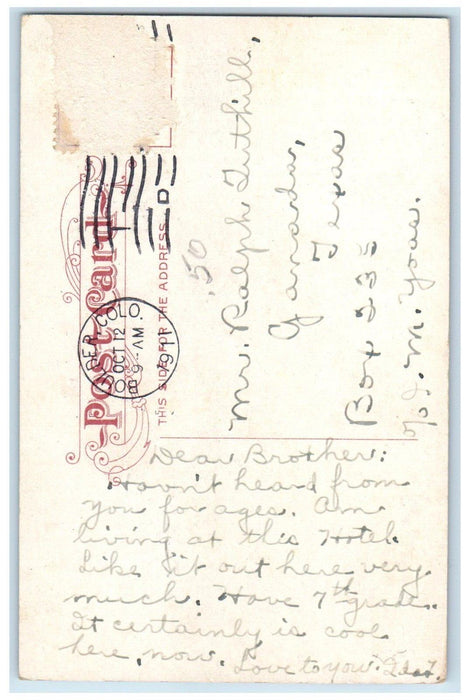 Post Card
THIS SIDE FOR THE ADDRESS
COLO.
OCT 12
9 - AM
1911
D
.50
Mr. Ralph Tuthill,
Ganado,
Texas
Box 235
M. Yoas.
Dear Brother:
Havn't heard from
you for ages. Am
living at this Hotel.
Like it out here very
much. Have 7th grade.
It certainly is cool
here, now. Love to you.